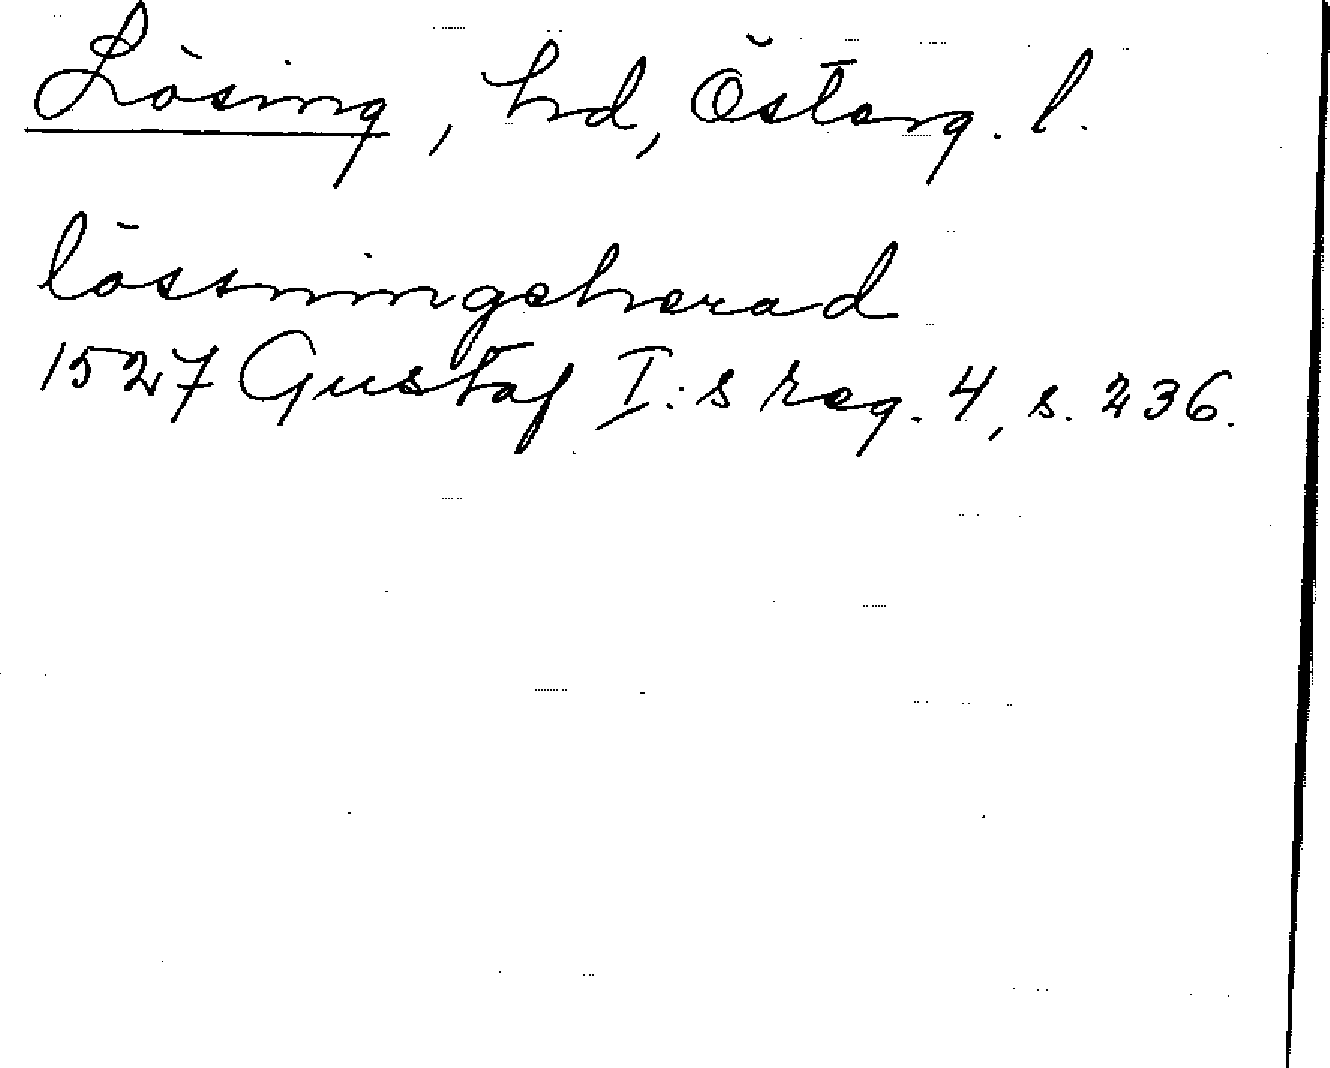 Lösing, hd, Österg. l.
lössningsherad
1527 Gustaf I:s reg. 4, s. 236.